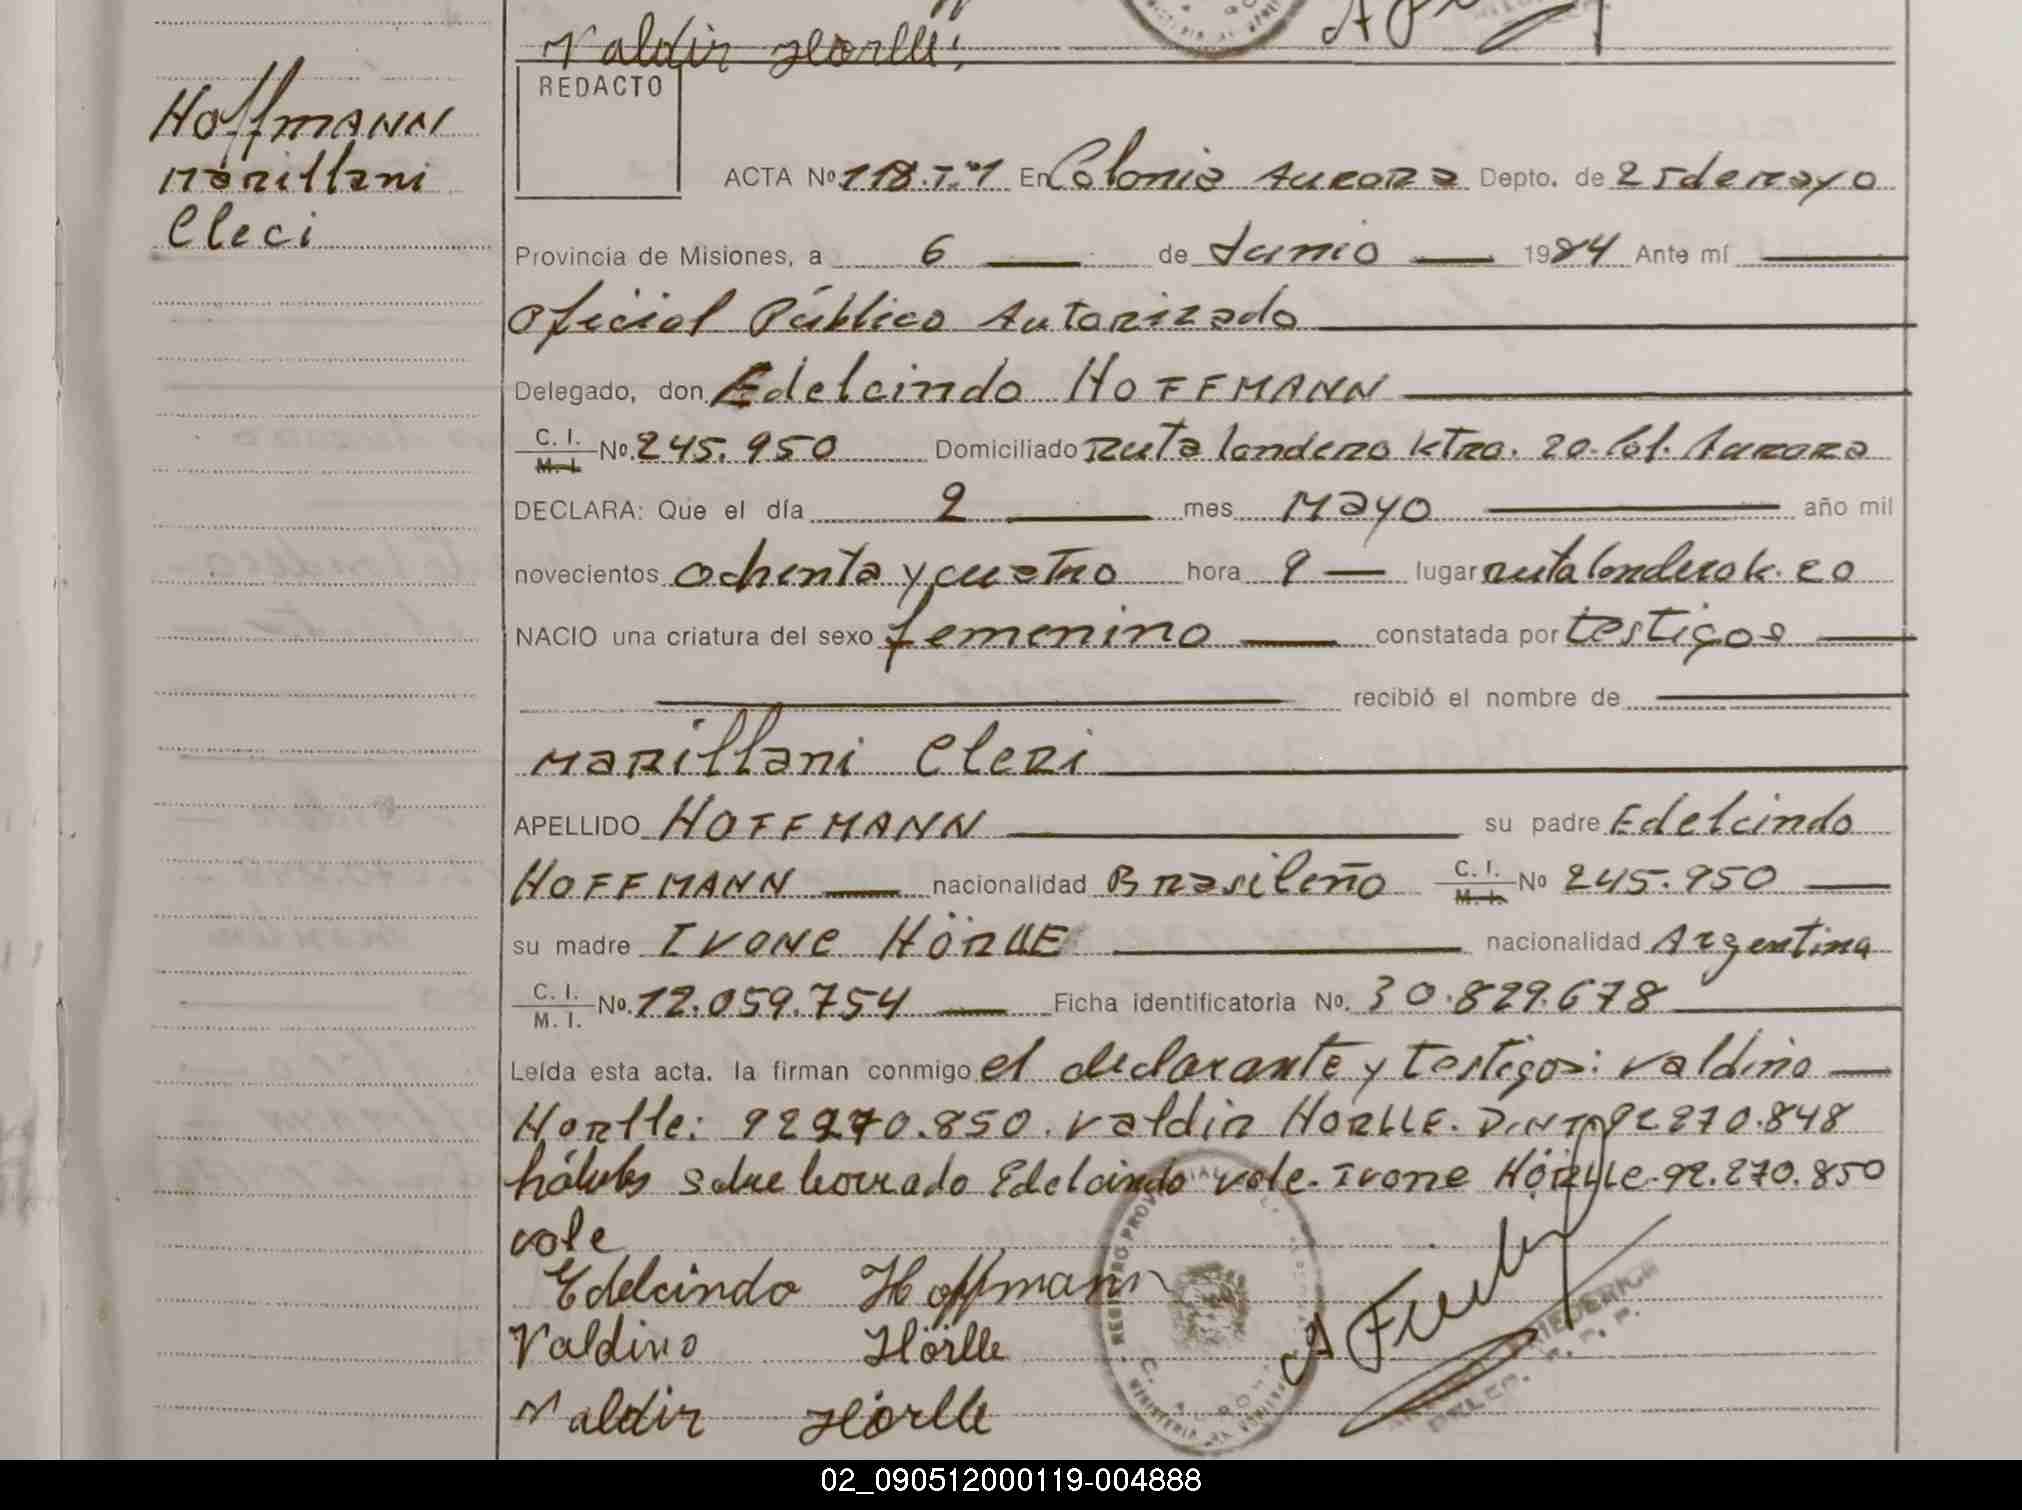 Valdir Hörlle.
REDACTO
Hoffmann
Marillani
Cleci
ACTA No. 118.T.º1 En Colonia Aurora Depto. de 25 de mayo
Provincia de Misiones, a 6 de Junio 1984 Ante mí
Oficial Público Autorizado
Delegado, don Edelcindo HOFFMANN
C. I. M. I. No. 245.950 Domiciliado Ruta londero ktro. 20. Col. Aurora
DECLARA: Que el día 2 mes Mayo año mil
novecientos ochenta y cuatro hora 9 lugar ruta londero k. 20
NACIO una criatura del sexo femenino constatada por testigos
recibió el nombre de
Marillani Cleri
APELLIDO HOFFMANN su padre Edelcindo
HOFFMANN nacionalidad Brasileño C. I. M. I. No 245.950
su madre IVONE HÖRLLE nacionalidad Argentina
C. I. M. I. No. 12.059.754 Ficha identificatoria No. 30.829.678
Leída esta acta, la firman conmigo el declarante y testigos: Valdino
Horlle: 92270.850. Valdir HORLLE. D.N.I. 92270.848
hábiles sobre borrado Edelcindo vale. Ivone Hörlle. 92.270.850
vale
Edelcindo Hoffmann
Valdino Hörlle
Valdir Hörlle
REGISTRO PROVINCIAL
FRIEDERICH
DELEG.
02_090512000119-004888